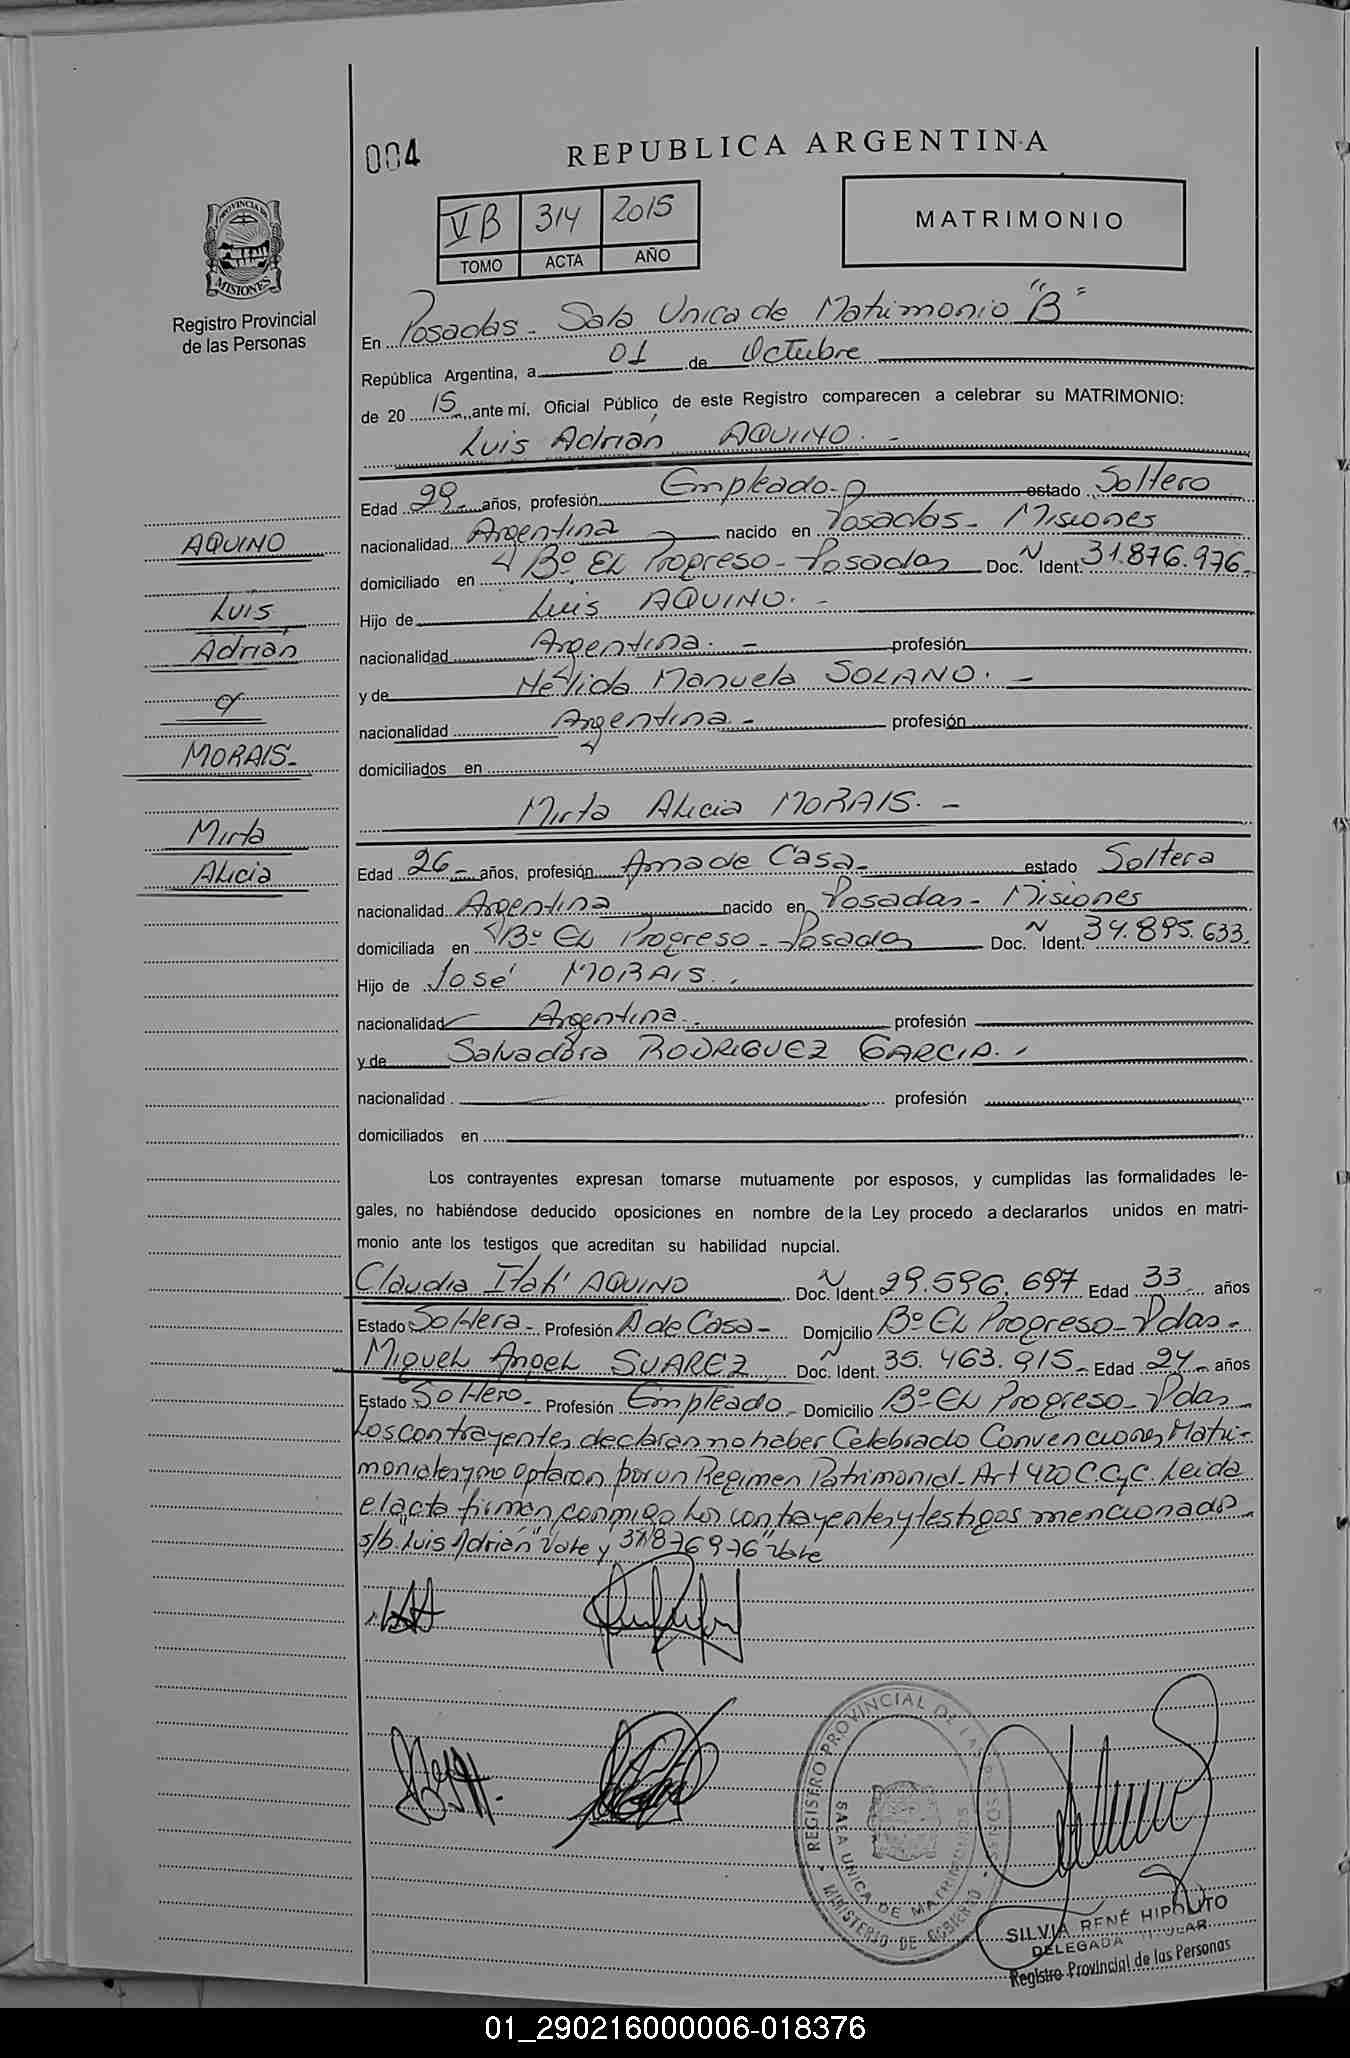 004
REPUBLICA ARGENTINA
VB 314 2015
TOMO ACTA AÑO
MATRIMONIO
PROVINCIA DE
MISIONES
Registro Provincial
de las Personas
En Posadas - Sala Unica de Matrimonio "B"
República Argentina, a 01 de Octubre
de 20 15 ante mí, Oficial Público de este Registro comparecen a celebrar su MATRIMONIO:
Luis Adrián AQUINO. -
Edad 29 años, profesión Empleado - estado Soltero
nacionalidad Argentina nacido en Posadas - Misiones
domiciliado en Bº EL Progreso - Posadas Doc. N Ident. 31.876.976.
Hijo de Luis AQUINO. -
nacionalidad Argentina. - profesión
y de Nélida Manuela SOLANO. -
nacionalidad Argentina. - profesión
domiciliados en
Mirta Alicia MORAIS. -
Edad 26 - años, profesión Ama de Casa - estado Soltera
nacionalidad Argentina nacido en Posadas - Misiones
domiciliada en Bº EL Progreso - Posadas Doc. N Ident. 34.895.633.
Hijo de José MORAIS.
nacionalidad Argentina. profesión
y de Salvadora RODRIGUEZ GARCIA.
nacionalidad profesión
domiciliados en
AQUINO
Luis
Adrián
c/
MORAIS -
Mirta
Alicia
Los contrayentes expresan tomarse mutuamente por esposos, y cumplidas las formalidades le-
gales, no habiéndose deducido oposiciones en nombre de la Ley procedo a declararlos unidos en matri-
monio ante los testigos que acreditan su habilidad nupcial.
Claudia Itatí AQUINO Doc. N Ident. 29.596.697 Edad 33 años
Estado Soltera - Profesión A de Casa - Domicilio Bº EL Progreso - Pdas -
Miguel Angel SUAREZ Doc. N Ident. 35.463.915 - Edad 24 - años
Estado Soltero - Profesión Empleado - Domicilio Bº EL Progreso - Pdas
Los contrayentes declaran no haber Celebrado Convenciones Matri-
moniales y no optaron por un Regimen Patrimonial - Art 420 C.C.yC. Leida
el acta firman conmigo los contrayentes y testigos mencionado
s/b. "Luis Adrián" Vale y 31876976" Vale
REGISTRO PROVINCIAL DE LAS PERSONAS
SALA UNICA DE MATRIMONIOS
MINISTERIO DE GOBIERNO
SILVIA RENÉ HIPOLITO
DELEGADA TITULAR
Registro Provincial de las Personas
01_290216000006-018376